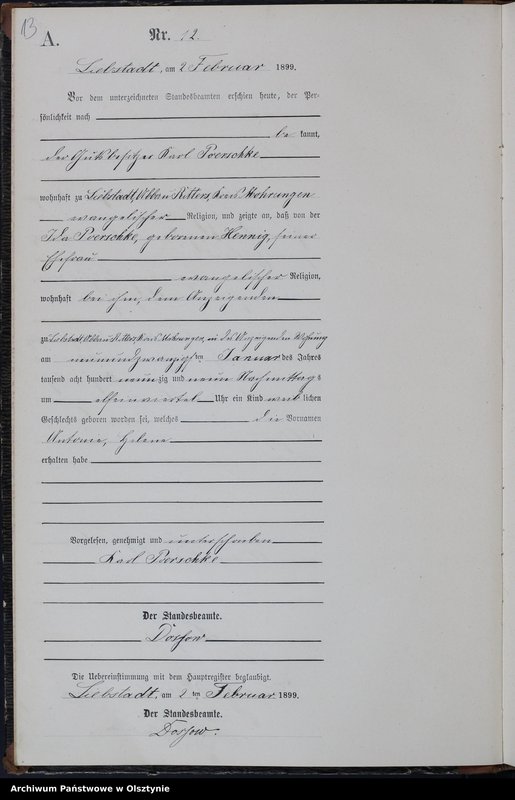 13
A.
Nr. 12.
Liebstadt, am 2 Februar 1899.
Vor dem unterzeichneten Standesbeamten erschien heute, der Per-
sönlichkeit nach
be kannt,
der Gutsbesitzer Karl Poerschke
wohnhaft zu Liebstadt, Abbau Ritters, Kreis Mohrungen
evangelischer Religion, und zeigte an, daß von der
Ida Poerschke, geborenen Hennig, seiner
Ehefrau
evangelischer Religion,
wohnhaft bei ihm, dem Anzeigenden
zu Liebstadt, Abbau Ritters, Kreis Mohrungen, in des Anzeigenden Wohnung
am neunundzwanzigsten Januar des Jahres
tausend acht hundert neunzig und neun Nachmittags
um elfeinviertel Uhr ein Kind weiblichen
Geschlechts geboren worden sei, welches die Vornamen
Antonie, Helene
erhalten habe
Vorgelesen, genehmigt und unterschrieben
Karl Poerschke
Der Standesbeamte.
Die Uebereinstimmung mit dem Hauptregister beglaubigt.
Liebstadt, am 2ten Februar 1899.
Der Standesbeamte.
Archiwum Państwowe w Olsztynie